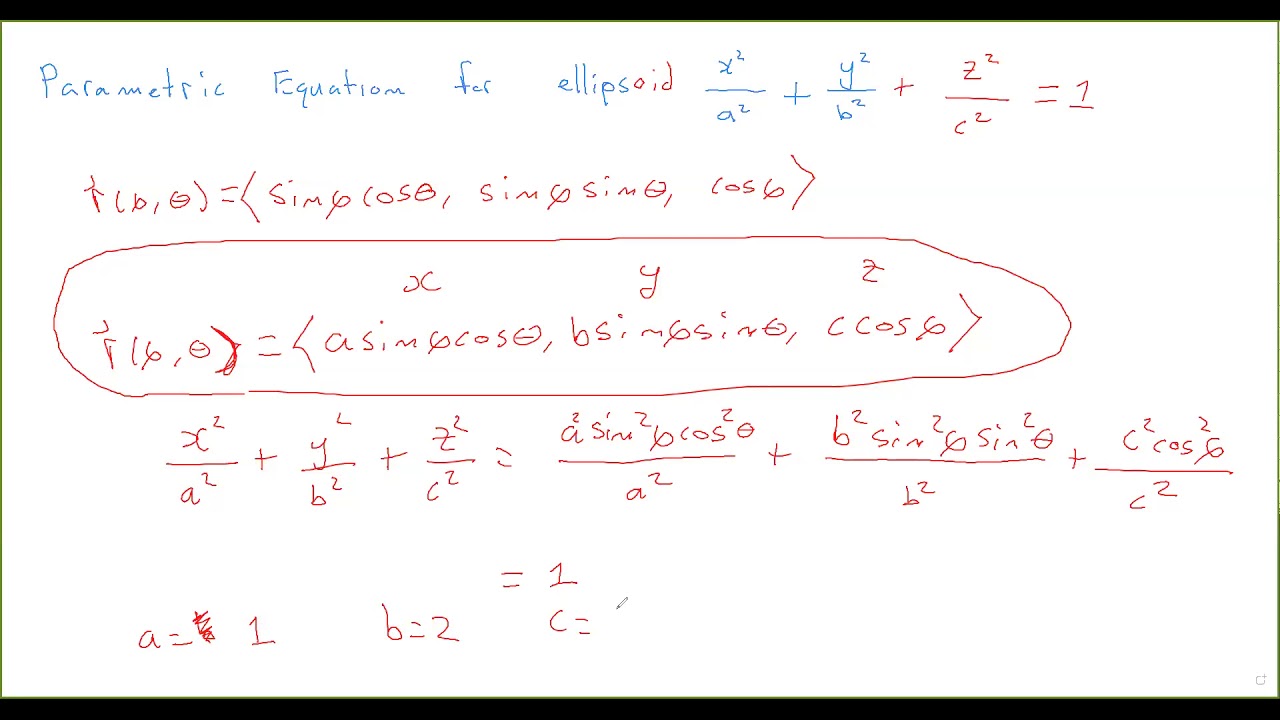 Parametric Equation for ellipsoid x²/a² + y²/b² + z²/c² = 1
r⃗(φ, θ) = ⟨sinφcosθ, sinφsinθ, cosφ⟩
x y z
r⃗(φ, θ) = ⟨asinφcosθ, bsinφsinθ, ccosφ⟩
x²/a² + y²/b² + z²/c² = a²sin²φcos²θ/a² + b²sin²φsin²θ/b² + c²cos²φ/c²
= 1
a = 1 b = 2 c =